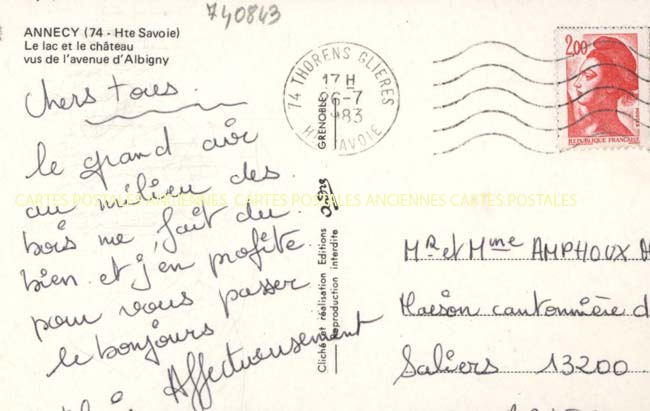 740843
ANNECY (74 - Hte Savoie)
Le lac et le château
vus de l'avenue d'Albigny
chers tous.
le grand air
au milieu des
bois me fait du
bien et j'en profite
pour vous passer
le bonjours
Affectueusement
74 THORENS GLIERES
17 H
26-7
1983
HTE SAVOIE
2,00
REPUBLIQUE FRANÇAISE
CARTES POSTALES ANCIENNES CARTES POSTALES ANCIENNES CARTES POSTALES
GRENOBLE
Cliché et réalisation Editions
Reproduction interdite
Mr et Mme AMPHOUX
Maison cantonnière d
Saliers 13200